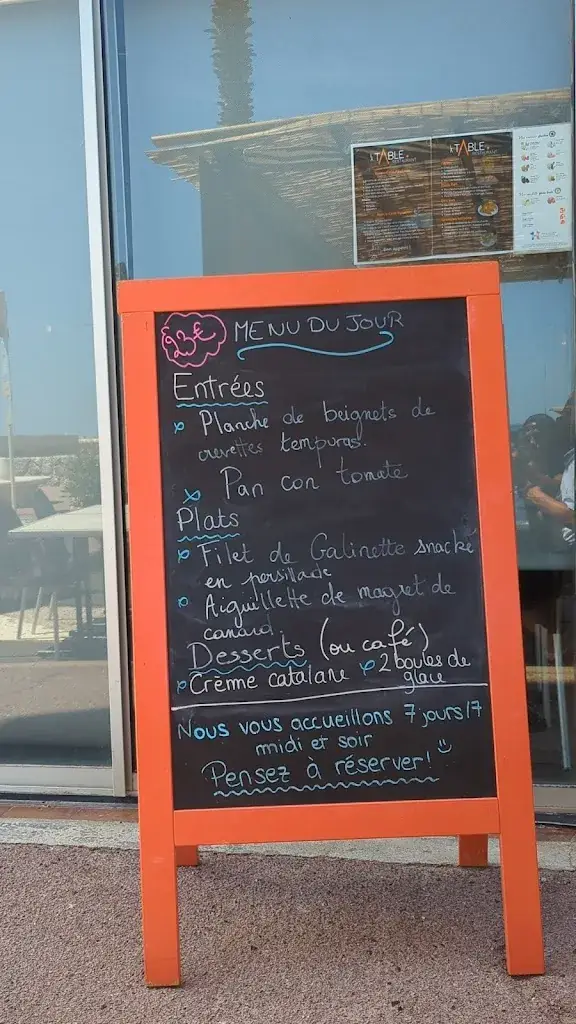 LA TABLE
RESTAURANT
LA TABLE
RESTAURANT
23€ MENU DU JOUR
Entrées
Planche de beignets de
crevettes tempuras.
Pan con tomate
Plats
Filet de Galinette snacké
en persillade
Aiguillette de magret de
canard
Desserts (ou café)
Crème catalane 2 boules de
glace
Nous vous accueillons 7 jours/7
midi et soir
Pensez à réserver!